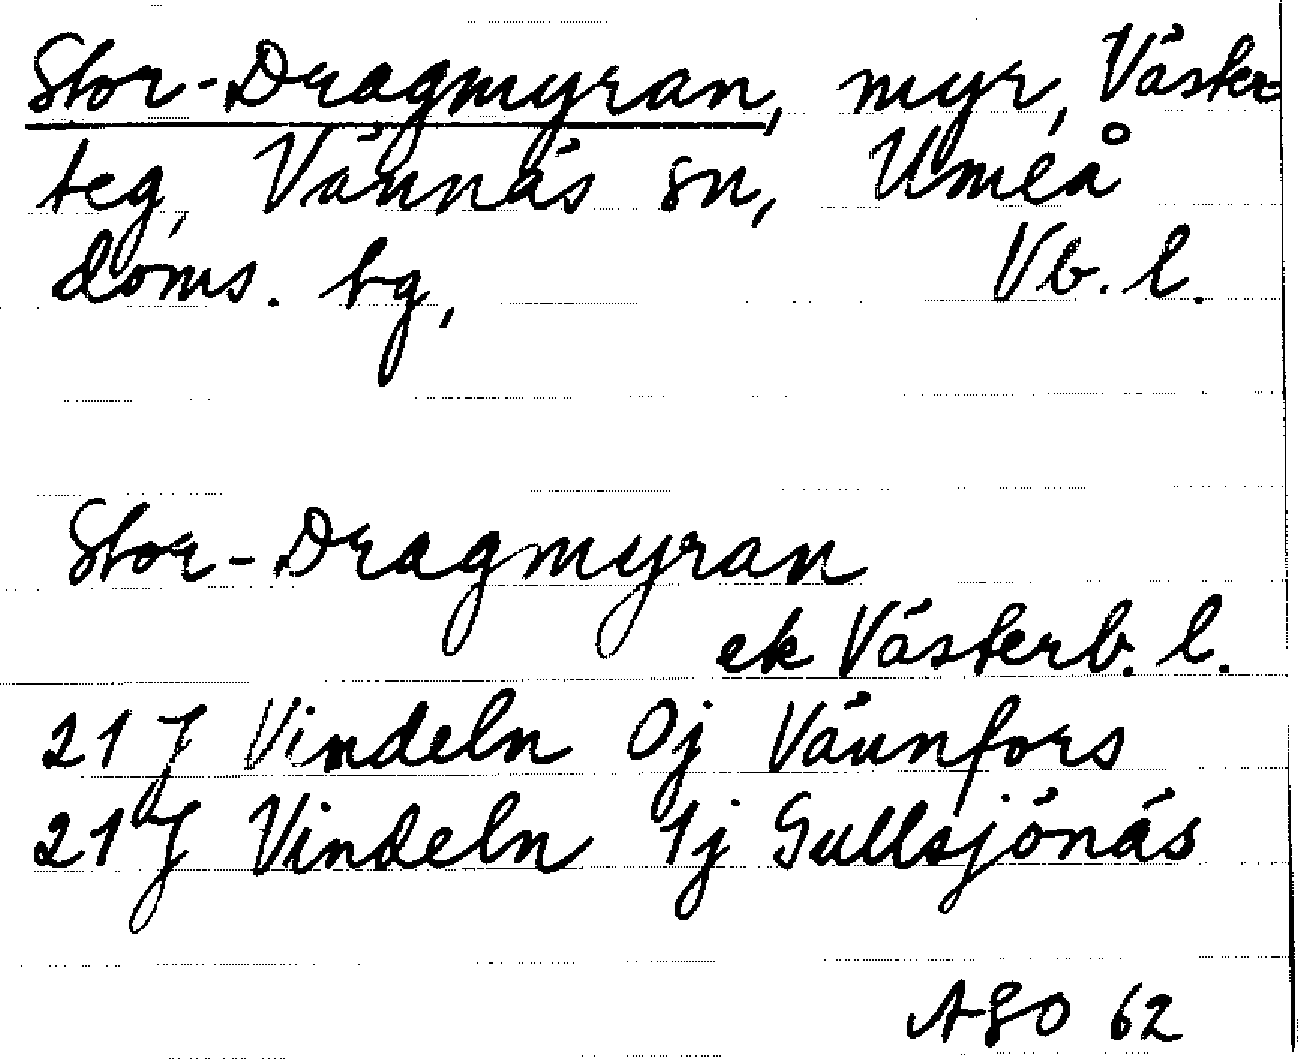 Stor-Dragmyran, myr, Väster
teg, Vännäs sn, Umeå
doms. bg, Vb. l.
Stor-Dragmyran
ek Västerb. l.
21 J Vindeln 0j Vännfors
21 J Vindeln 1j Gullsjönäs
ASO 62